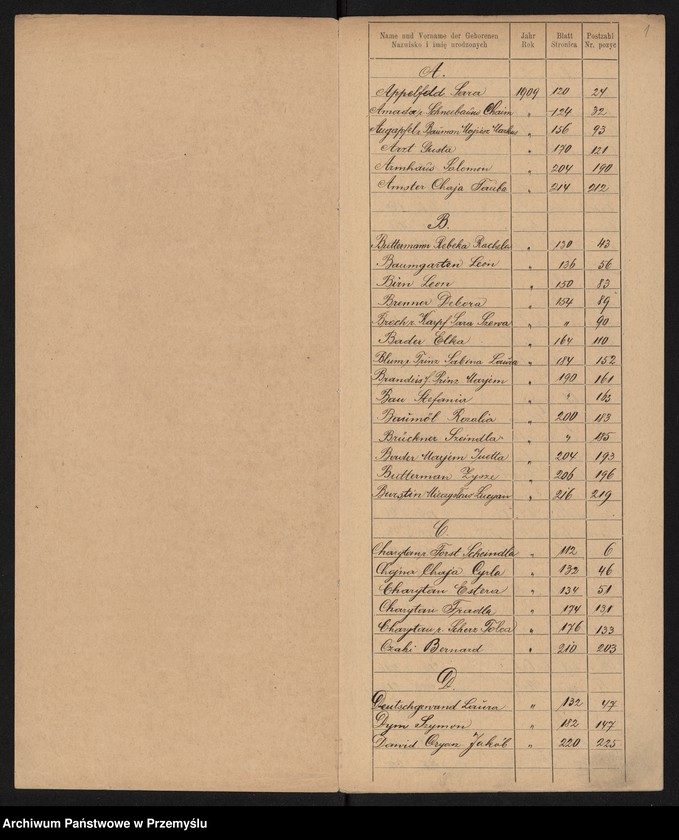 1
Name und Vorname der Geborenen Jahr Blatt Postzahl
Nazwisko i imię urodzonych Rok Stronica Nr. pozyc
A.
Appelfeld Sara 1909 120 24
Amada r. Schneebaum Chaim " 124 32
Augapfel r. Bauman Mojżesz Markus " 156 93
Arzt Gusta " 170 121
Armhaus Salomon " 204 190
Amster Chaja Tauba " 214 212
B.
Buttermann Rebeka Rachela " 130 43
Baumgarten Leon " 136 56
Birn Leon " 150 83
Brenner Debora " 154 89
Broch r. Karpf Sara " " 90
Bader Elka " 164 110
Blum r. Prinz Sabina Laura " 184 152
Brandeis f. Prinz Marjem " 190 161
Bau Stefania " " 163
Baumöl Rozalia " 200 183
Brückner Szeindla " " 185
Bader Marjem Juetta " 204 193
Butterman Zysze " 206 196
Burstin Mieczysław Lucyan " 216 219
C.
Charytan r. Forst Scheindla " 112 6
Chajna Chaja Cyrla " 132 46
Charytan Estera " 134 51
Charytan Fradla " 174 131
Charytan r. Scherz Tolca " 176 133
Czaki Bernard " 210 203
D.
Deutschgewand Laura " 132 47
Dym Szymon " 182 147
Dawid Cryan Jakób " 220 225
Archiwum Państwowe w Przemyślu